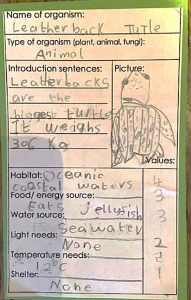 Name of organism:
Leatherback Tutle
Type of organism (plant, animal, fungi):
Animal
Introduction sentences:
Picture:
Leatherbacks
are the
biggest turtle
It weighs
306 Kg
Values:
Habitat: Oceanic
coastal waters
4
Food/ energy source:
3
Eats jellyfish
Water source:
3
Seawater
Light needs:
2
None
Temperature needs:
2
12°C
Shelter:
1
None